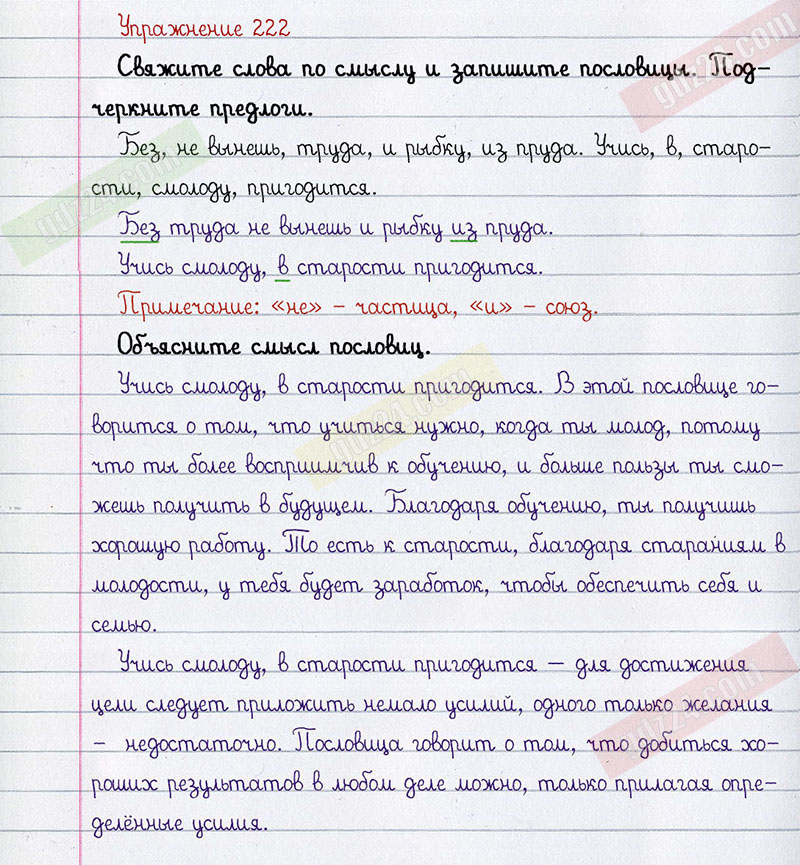 Упражнение 222
Свяжите слова по смыслу и запишите пословицы. Под-
черкните предлоги.
Без, не вынешь, труда, и рыбку, из пруда. Учись, в, старо-
сти, смолоду, пригодится.
Без труда не вынешь и рыбку из пруда.
Учись смолоду, в старости пригодится.
Примечание: «не» – частица, «и» – союз.
Объясните смысл пословиц.
Учись смолоду, в старости пригодится. В этой пословице го-
ворится о том, что учиться нужно, когда ты молод, потому
что ты более восприимчив к обучению, и больше пользы ты смо-
жешь получить в будущем. Благодаря обучению, ты получишь
хорошую работу. То есть к старости, благодаря стараниям в
молодости, у тебя будет заработок, чтобы обеспечить себя и
семью.
Учись смолоду, в старости пригодится – для достижения
цели следует приложить немало усилий, одного только желания
– недостаточно. Пословица говорит о том, что добиться хо-
раших результатов в любом деле можно, только прилагая опре-
делённые усилия.
gdz24.com
gdz24.com
gdz24.com
gdz24.com